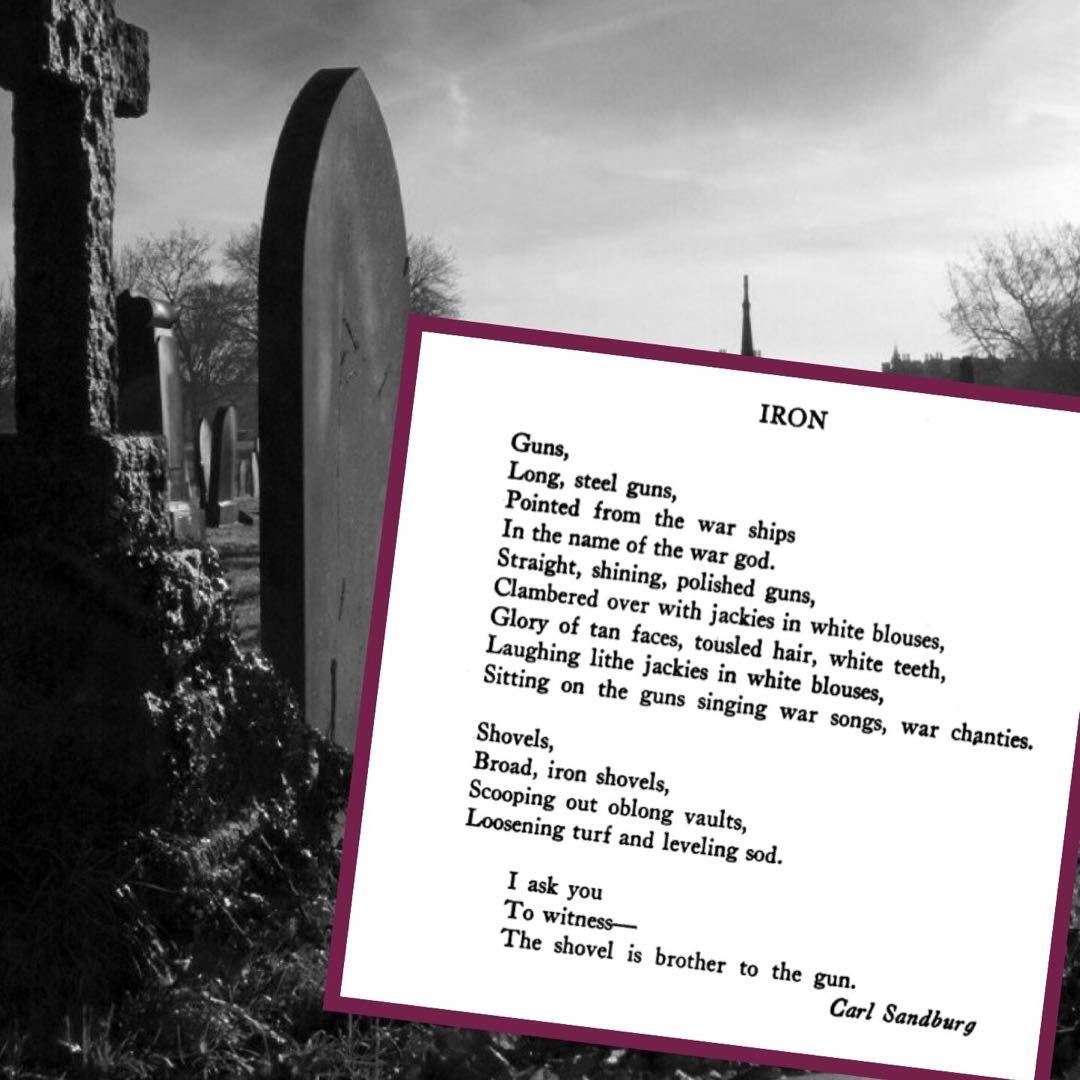 IRON
Guns,
Long, steel guns,
Pointed from the war ships
In the name of the war god.
Straight, shining, polished guns,
Clambered over with jackies in white blouses,
Glory of tan faces, tousled hair, white teeth,
Laughing lithe jackies in white blouses,
Sitting on the guns singing war songs, war chanties.
Shovels,
Broad, iron shovels,
Scooping out oblong vaults,
Loosening turf and leveling sod.
I ask you
To witness—
The shovel is brother to the gun.
Carl Sandburg